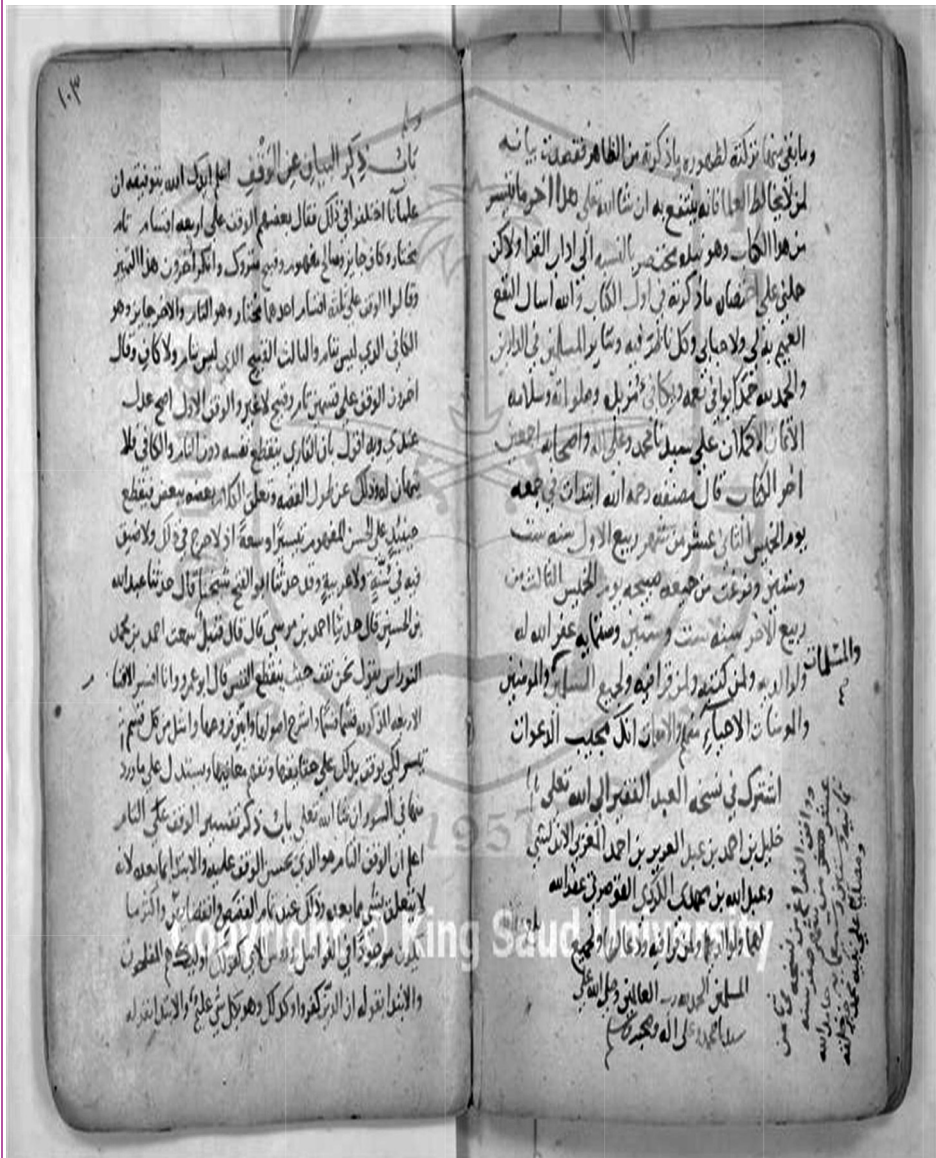 وما بقي منها تركته لظهوره بما ذكرته من الظاهر فقصدت بيانه
لمن لا يخالط العلما فانه ينتفع به ان شا الله على هذا اخر ما تيسر
من هذا الكتاب وهو نبيله مختصر بالنسبه الى ادار القرا ولاكن
حملني على اختصاره ما ذكرته في اول الكتاب والله اسال النفع
العميم به لي ولاحبابي وكل ناظر فيه وسائر المسلمين في الدارين
والحمد لله حمدا يوافي نعمه ويكافي مزيده وصلواته وسلامه
الاتمان الاكملان على سيدنا محمد وعلى اله واصحابه اجمعين
اخر الكتاب قال مصنفه رحمه الله ابتدات في جمعه
يوم الخميس الثاني عشر من شهر ربيع الاول سنه ست
وستين وفرغت من جميعه صبيحه يوم الخميس الثالث من
ربيع الاخر سنه ست وستين غفر الله له
ولوالديه ولمن كتبه ولمن قرا فيه ولجميع المسلمين والمومنين
والمسلمات
والمومنات الاحياء منهم والاموات انك مجيب الدعوات
اشترك في نسخه العبد الفقير الى الله تعلى
خليل بن احمد بن عبد العزيز بن احمد
وعبد الله بن مهدي غفر الله
لهما ولوالديهما ولمن قرا فيه ودعا لهما ولجميع
المسلمين الحمد لله رب العالمين وصلى الله على
سيدنا محمد وعلى اله وصحبه
ووافق الفراغ من نسخه
عشر من شهر صفر سنه
ثمانيه حامدا لله
ومصليا على نبيه محمد
١٠٣
باب ذكر البيان عن الوقف اعلم ايدك الله بتوفيقه ان
علمآنا اختلفوا في ذلك فقال بعضهم الوقف على اربعه اقسام تام
مختار وكاف جايز وصالح مفهوم وقبيح متروك وانكر اخرون هذا التمييز
وقالوا الوقف على ثلثه اقسام احدهما مختار وهو التام والاخر جايز وهو
الكافي الذي ليس بتام والثالث القبيح الذي ليس بتام ولا كاف وقال
اخرون الوقف على قسمين تام وقبيح لا غير والوقف الاول اصح عدل
عندي وبه اقول بان القاري ينقطع نفسه دون التام والكافي فلا
يتهيان له وذلك عن طول القصه وتعلق الكلام بعضه ببعض فيقطع
حينيذ على الحسن المفهوم تيسيرا وسعة اذ لا حرج في ذلك ولا ضيق
فيه في سنة ولا عربيه وقد حدثنا ابو الفتح شيخنا قال حدثنا عبد الله
بن الحسين قال حدثنا احمد بن موسى قال قال قنبل سمعت احمد بن محمد
القواس يقول نحن نقف حيث ينقطع النفس قال ابو عمرو وانا افسر الاقسا
الاربعه المذكوره قسما قسما واشرح اصولها وابين فروعها وامثل من كل قسم
تيسر لكي يوقف بذلك على حقايقها وتفهم معانيها ويستدل على ما ورد
منها في السور ان شا الله تعلى باب ذكر تفسير الوقف على التام
اعلم ان الوقف التام هو الذي يحسن الوقف عليه والابتدا بما بعده لانه
لا يتعلق بشي مما بعده وذلك عند تمام القصص وانقضايهن واكثر ما
يكون موجودا في الفواصل وروس الاي كقولك اوليك هم المفلحون
والابتدا بقوله ان الذين كفروا وكذلك وهو بكل شي عليم والابتدا بقوله
Copyright © King Saud University
1957